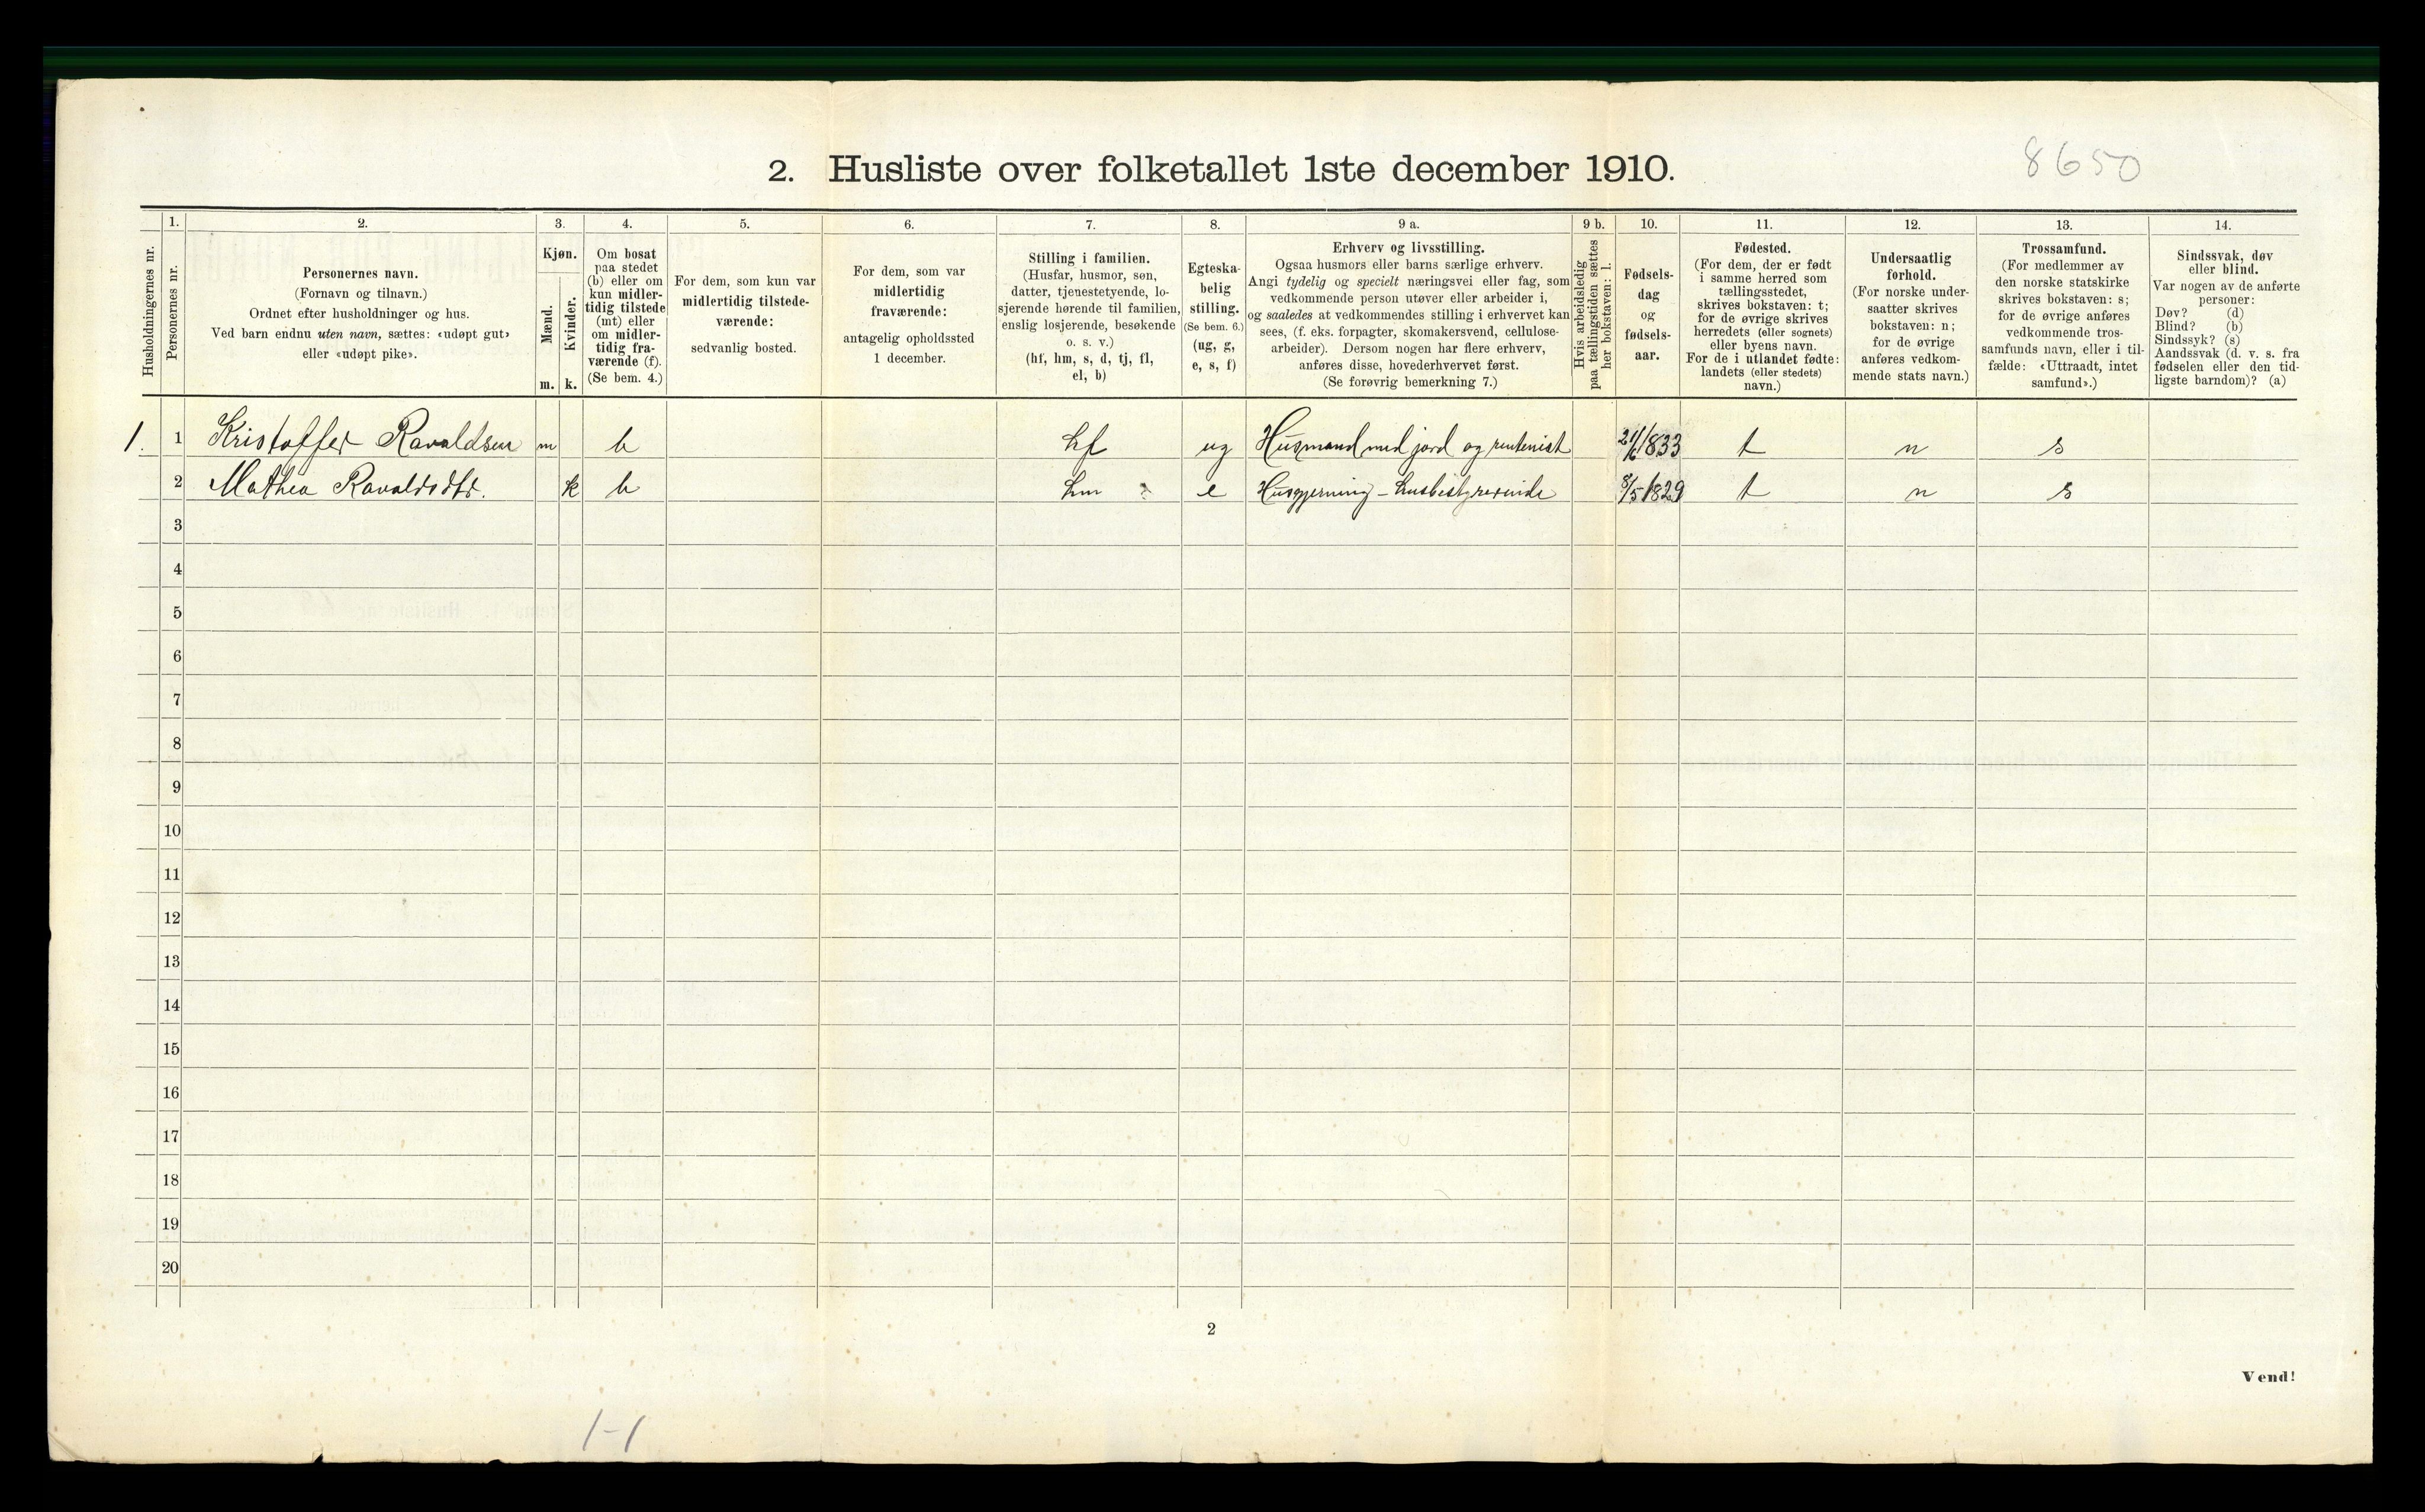 8650
2. Husliste over folketallet 1ste december 1910.
Husholdningernes nr.
1.
Personernes nr.
2.
Personernes navn.
(Fornavn og tilnavn.)
Ordnet efter husholdninger og hus.
Ved barn endnu uten navn, sættes: «udøpt gut»
eller «udøpt pike».
3.
Kjøn.
Mænd.
Kvinder.
m. k.
4.
Om bosat
paa stedet
(b) eller om
kun midler-
tidig tilstede
(mt) eller
om midler-
tidig fra-
værende (f).
(Se bem. 4.)
5.
For dem, som kun var
midlertidig tilstede-
værende:
sedvanlig bosted.
6.
For dem, som var
midlertidig
fraværende:
antagelig opholdssted
1 december.
7.
Stilling i familien.
(Husfar, husmor, søn,
datter, tjenestetyende, lo-
sjerende hørende til familien,
enslig losjerende, besøkende
o. s. v.)
(hf, hm, s, d, tj, fl,
el, b)
8.
Egteska-
belig
stilling.
(Se bem. 6.)
(ug, g,
e, s, f)
9 a.
Erhverv og livsstilling.
Ogsaa husmors eller barns særlige erhverv.
Angi tydelig og specielt næringsvei eller fag, som
vedkommende person utøver eller arbeider i,
og saaledes at vedkommendes stilling i erhvervet kan
sees, (f. eks. forpagter, skomakersvend, cellulose-
arbeider). Dersom nogen har flere erhverv,
anføres disse, hovederhvervet først.
(Se forøvrig bemerkning 7.)
9 b.
Hvis arbeidsledig
paa tællingstiden sættes
her bokstaven: l.
10.
Fødsels-
dag
og
fødsels-
aar.
11.
Fødested.
(For dem, der er født
i samme herred som
tællingsstedet,
skrives bokstaven: t;
for de øvrige skrives
herredets (eller sognets)
eller byens navn.
For de i utlandet fødte:
landets (eller stedets)
navn.)
12.
Undersaatlig
forhold.
(For norske under-
saatter skrives
bokstaven: n;
for de øvrige
anføres vedkom-
mende stats navn.)
13.
Trossamfund.
(For medlemmer av
den norske statskirke
skrives bokstaven: s;
for de øvrige anføres
vedkommende tros-
samfunds navn, eller i til-
fælde: «Uttraadt, intet
samfund».)
14.
Sindssvak, døv
eller blind.
Var nogen av de anførte
personer:
Døv? (d)
Blind? (b)
Sindssyk? (s)
Aandssvak (d. v. s. fra
fødselen eller den tid-
ligste barndom)? (a)
1. 1 Kristoffer Ravaldsen m b hf ug Husmand med jord og rentenist 1833 t n s
2 Mathea Ravaldsdtr. k b hm e Husgjerning - husbestyrerinde 8/5 1829 t n s
3
4
5
6
7
8
9
10
11
12
13
14
15
16
17
18
19
20
2
Vend!
1-1